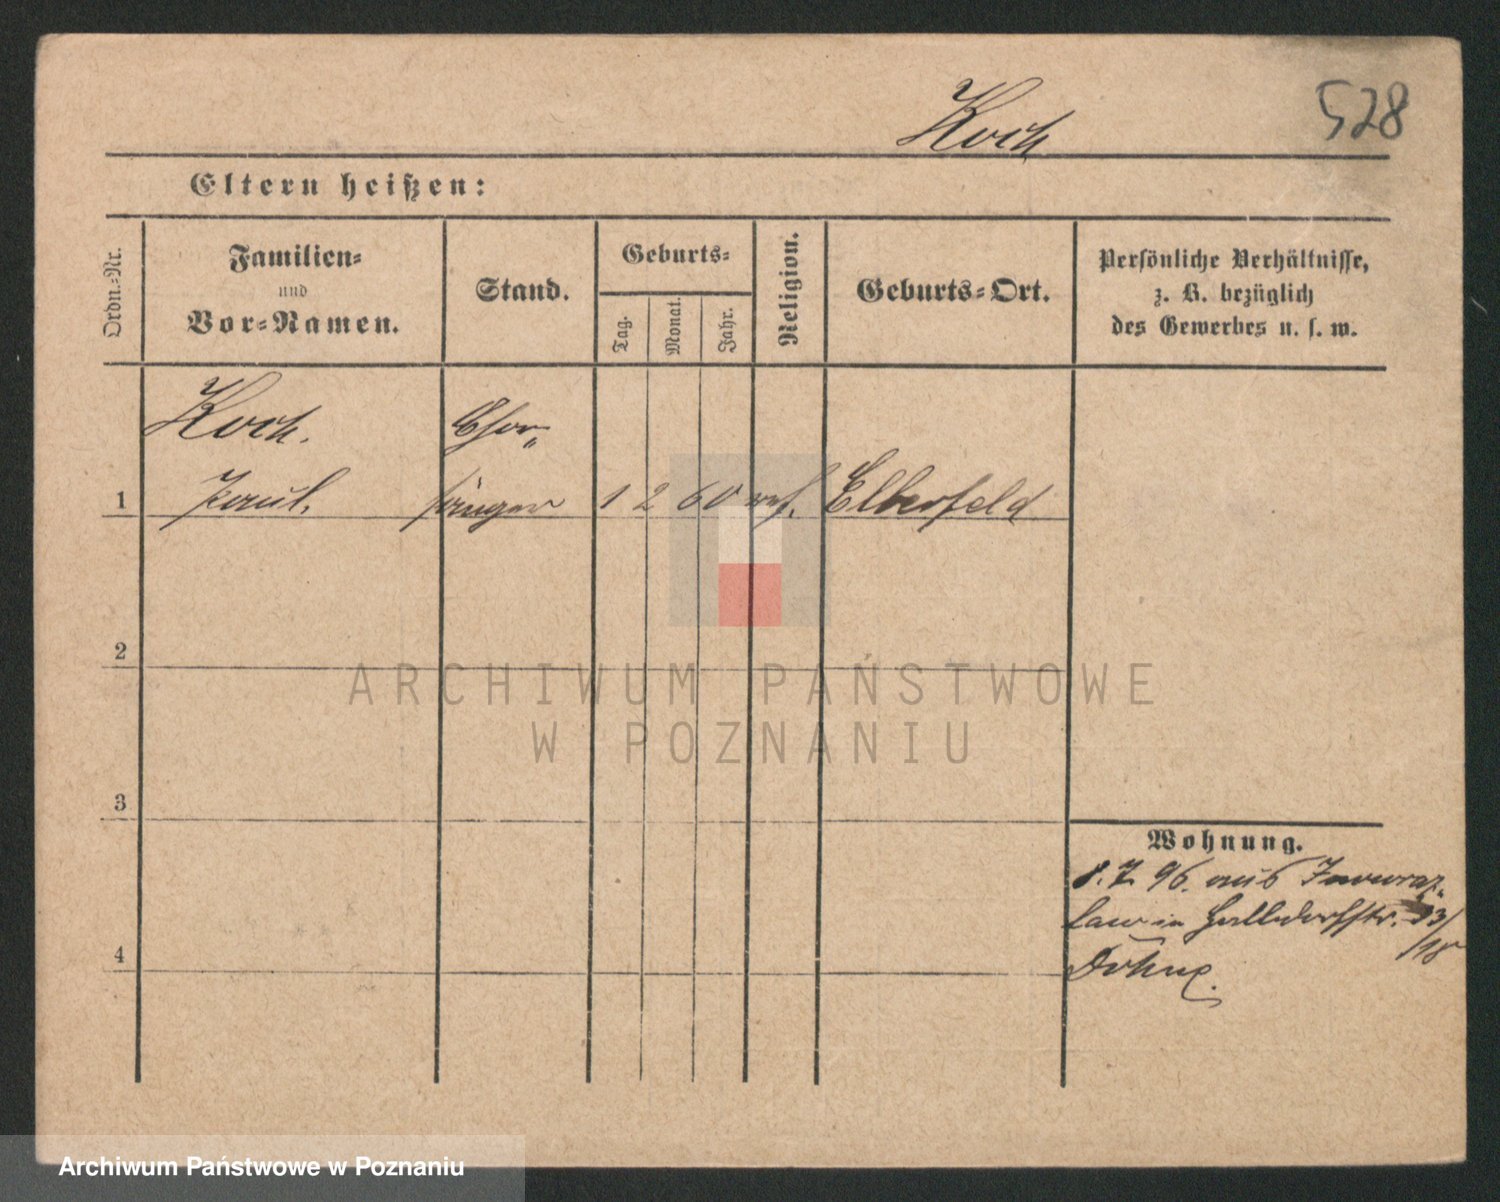 Koch
528
Eltern heißen:
Ordn.-Nr.
Familien-
und
Vor-Namen.
Stand.
Geburts-
Tag.
Monat.
Jahr.
Religion.
Geburts-Ort.
Persönliche Verhältnisse,
z. B. bezüglich
des Gewerbes u. s. w.
Koch.
Chor-
1 Paul. sänger 1 2 60 ref. Elberfeld
2
3
4
Wohnung.
8. 7. 96. aus Inowraz-
law in Halbdorfstr. 33/
/18
ARCHIWUM PAŃSTWOWE
W POZNANIU
Archiwum Państwowe w Poznaniu